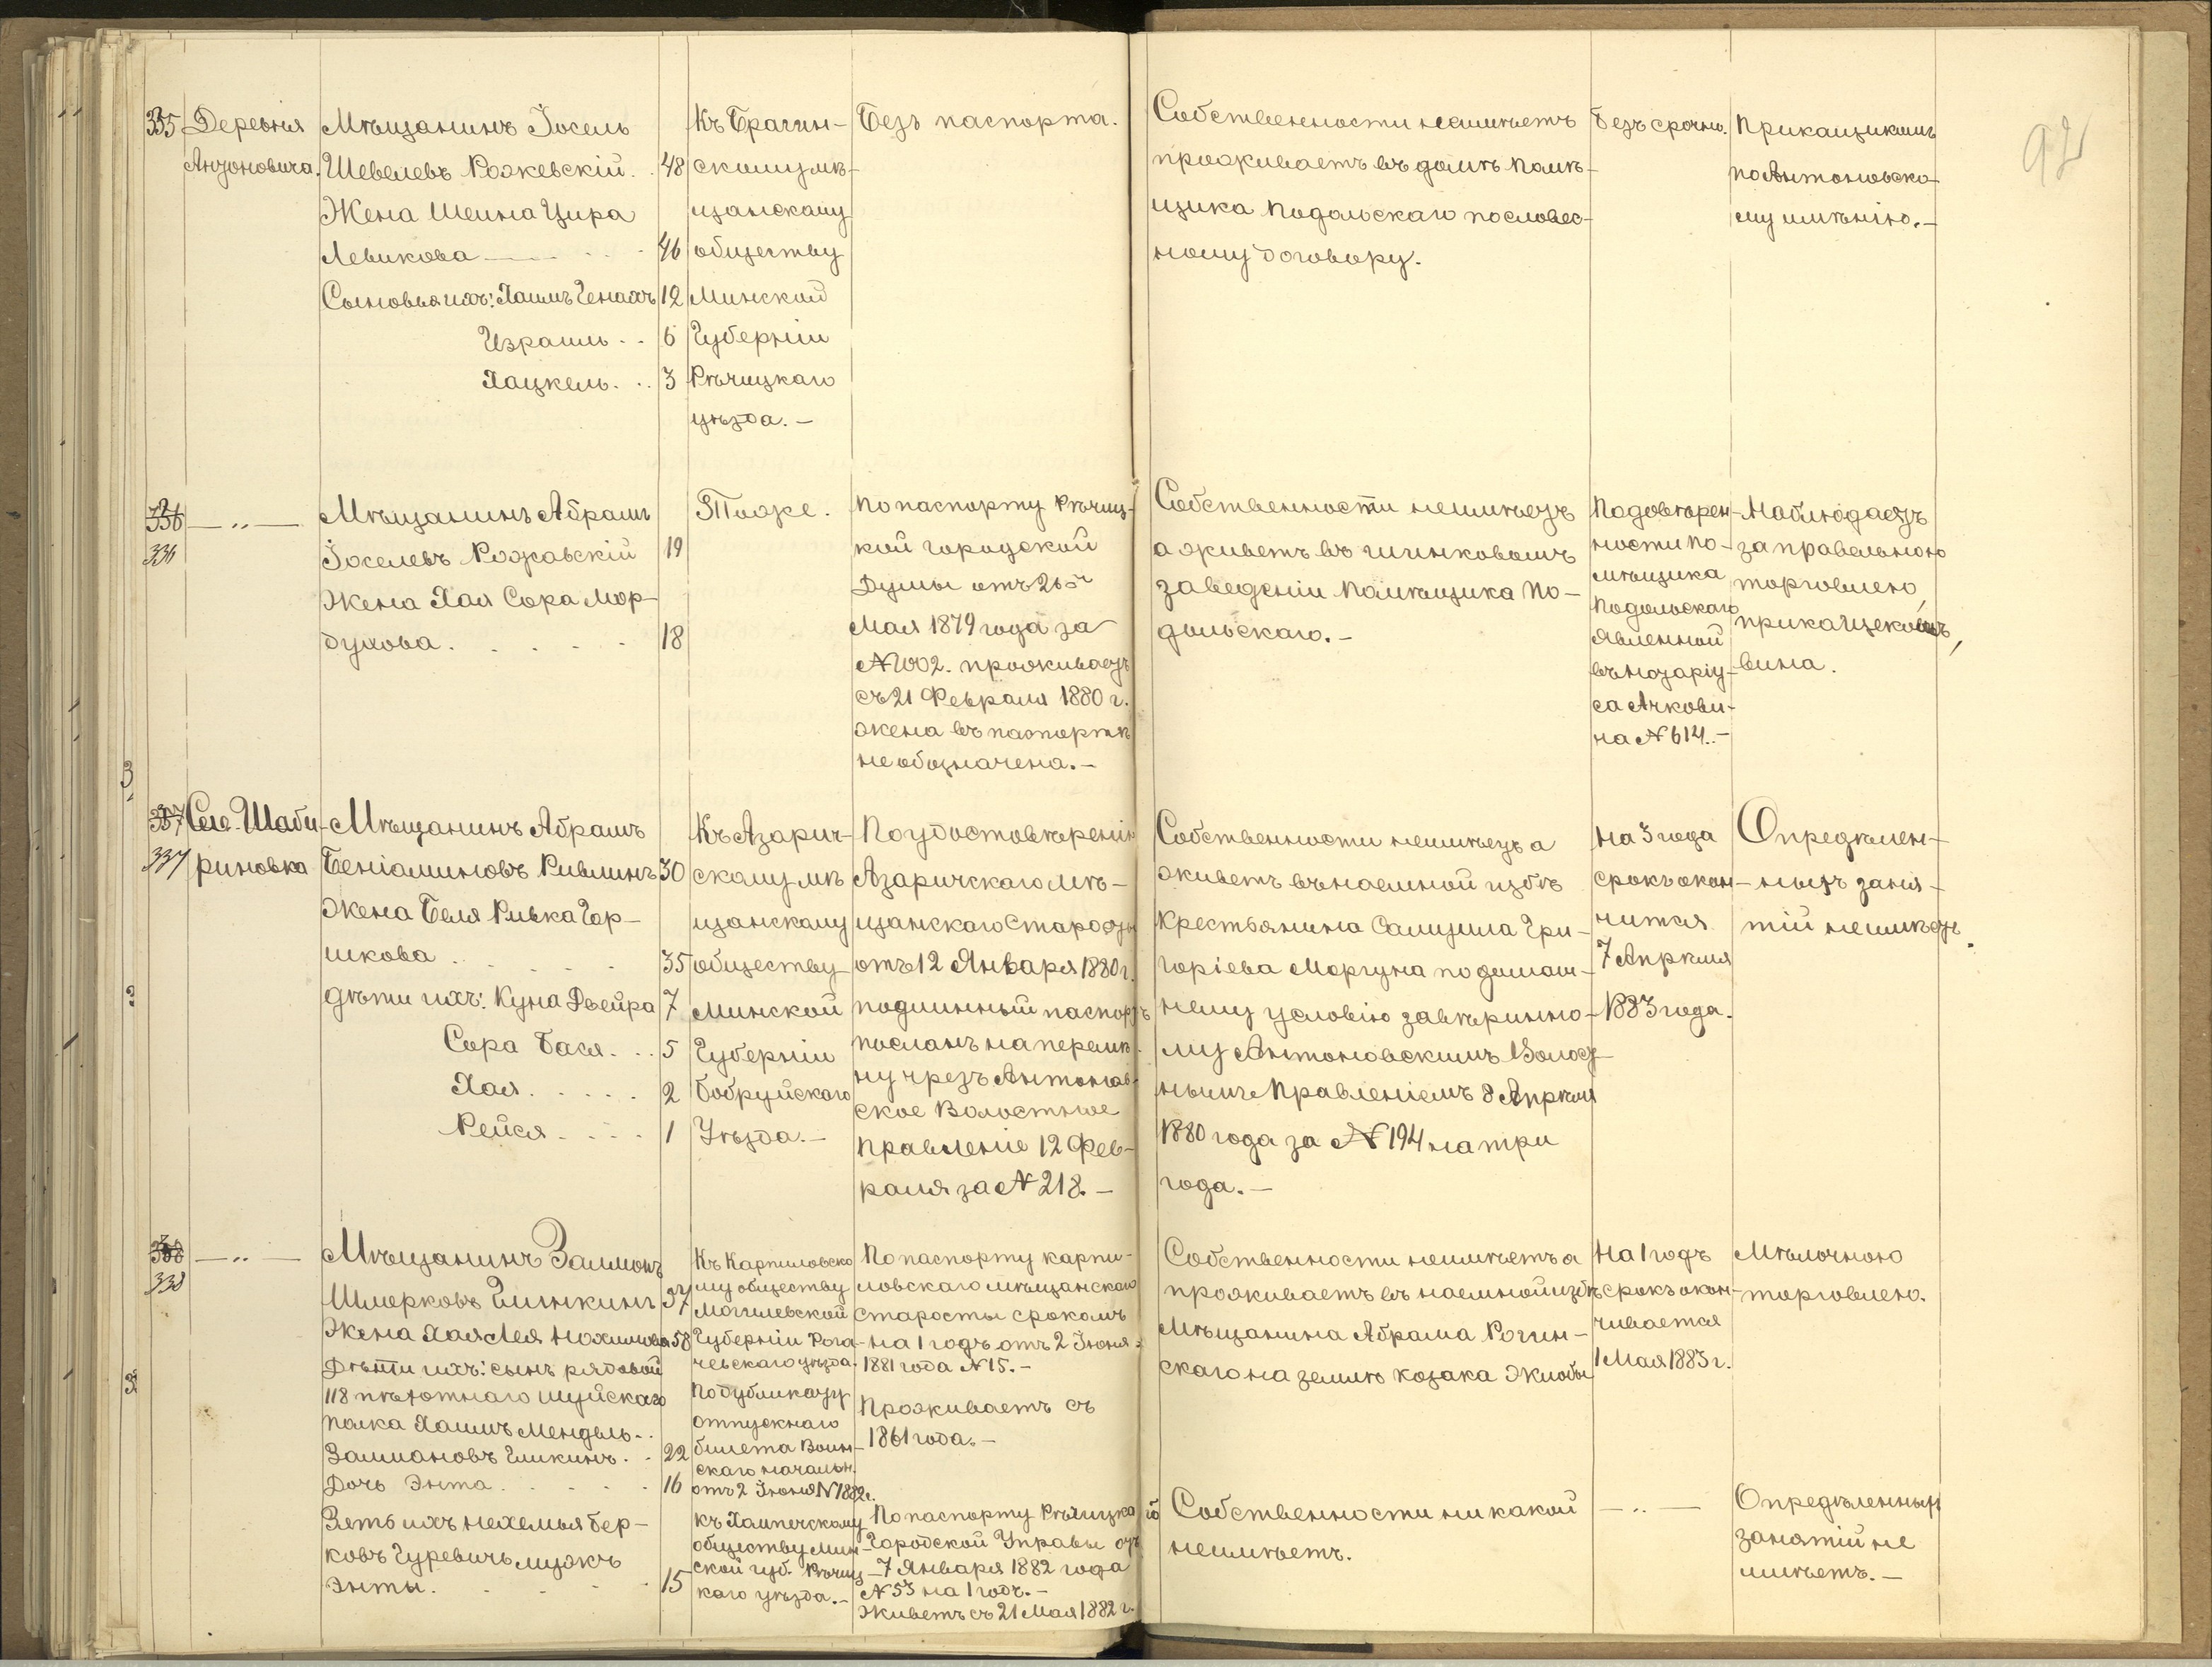 92
335
Деревня
Антоновича.
Мѣщанинъ Іосель
Шевелевъ Рожевскій. 48
Жена Шеина Цира
Левикова 46
Сыновья ихъ: Хаимъ Генахъ 12
Израиль 6
Хацкель 3
Къ Брагин-
скому мѣ-
щанскому
обществу
Минской
Губерніи
Рѣчицкаго
уѣзда.-
Безъ паспорта.
Собственности неимѣетъ
проживаетъ въ домѣ помѣ-
щика Подольскаго пословес-
ному договору.
Безъ срочно.
Прикащикомъ
по Антоновско-
му имѣнію.-
336
336
— „ —
Мѣщанинъ Абрамъ
Іоселевъ Рожавскій 19
Жена Хая Сора Мор-
духова 18
Тоже.
По паспорту Рѣчиц-
кой городской
Думы отъ 26-г
Мая 1879 года за
№ 1002. проживаетъ
съ 21 Февраля 1880 г.
жена въ паспортѣ
не обозначена.-
Собственности неимѣетъ
а живетъ въ шинковомъ
заведеніи помѣщика По-
дольскаго.-
Подовѣрен-
ности по-
мѣщика
Подольскаго
явленной
въ нотаріу-
са Ачкови-
на № 614.-
Наблюдаетъ
за правельною
торговлею,
прикащекомъ,
вина.
337
337
Село Шаби-
риновка
Мѣщанинъ Абрамъ
Беніаминовъ Ривлинъ 30
Жена Беля Ривка Гор-
шкова 35
дѣти ихъ: Куна Двейра 7
Сора Бася 5
Хая 2
Рейся 1
Къ Азарич-
скому мѣ
щанскому
обществу
Минской
Губерніи
Бобруйскаго
Уѣзда.-
Поудостовѣренію
Азаричскаго мѣ-
щанскаго Старосты
отъ 12 Января 1880 г.
подлинный паспортъ
посланъ на перемѣ-
ну чрезъ Антонов-
ское Волостное
Правленіе 12 Фев-
раля за № 218.-
Собственности неимѣетъ а
живетъ въ наемной избѣ
Крестьянина Самуила Гри-
горіева Моргуна по домаш-
нему условію завѣринно-
му Антоновскимъ Волост-
нымъ Правленіемъ 8 Апрѣля
1880 года за № 194 на три
года.-
На 3 года
срокъ окон-
чится
7 Апрѣля
1883 года.
Опредѣлен-
ныхъ заня-
тій неимѣетъ.
338
338
— „ —
Мѣщанинъ Залмонъ
Шмерковъ 37
Жена Хая Лея Нохимова 58
Дѣти ихъ: сынъ рядовой
118 пѣхотнаго шуйскаго
полка Хаимъ Мендель
Залмановъ 22
Дочь Энта 16
Зять ихъ Нехемья Бер-
ковъ Гуревичь мужъ
Энты 15
Къ Карпиловско
му обществу
Могилевской
Губерніи Рога-
чевскаго уѣзда.
Подубликату
отпускнаго
билета Воин-
скаго начальн.
отъ 2 Іюня № 1882 г.
Къ обществу Мин-
ской губ. Рѣчиц-
каго уѣзда.-
По паспорту карпи-
ловскаго мѣщанскаго
старосты срокомъ
на 1 годъ отъ 2 Іюня
1881 года № 15.-
Проживаетъ съ
1861 года.-
По паспорту Рѣчицкой
Городской Управы отъ
7 Января 1882 года
№ 53 на 1 годъ.-
живетъ съ 21 Мая 1882 г.
Собственности неимѣетъ а
проживаетъ въ наемной избѣ
Мѣщанина Абрама Рогин-
скаго на землѣ козака Жлобы
На 1 годъ
срокъ окон-
чивается
1 Мая 1883 г.
Мѣлочною
торговлею.
Собственности никакой
неимѣетъ.
— „ —
Опредѣленныхъ
занятій не
имѣетъ.-